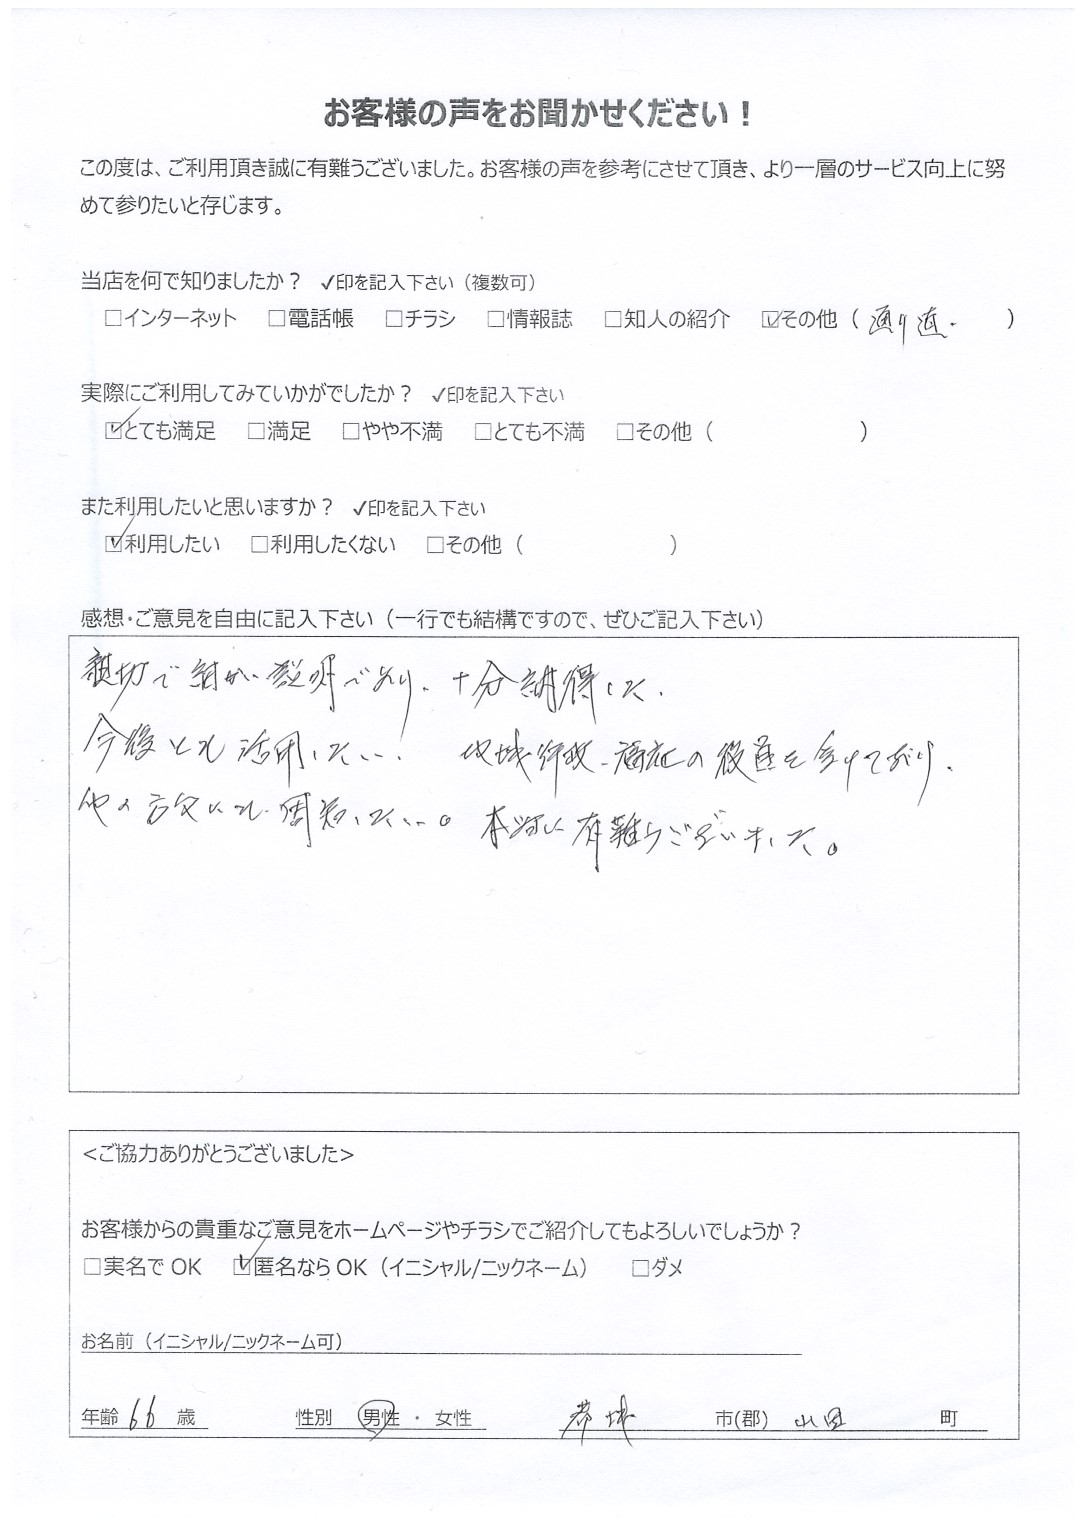 お客様の声をお聞かせください！
この度は、ご利用頂き誠に有難うございました。お客様の声を参考にさせて頂き、より一層のサービス向上に努
めて参りたいと存じます。
当店を何で知りましたか？ ✓印を記入下さい（複数可）
□インターネット □電話帳 □チラシ □情報誌 □知人の紹介 ☑その他（通り道. ）
実際にご利用してみていかがでしたか？ ✓印を記入下さい
☑とても満足 □満足 □やや不満 □とても不満 □その他（ ）
また利用したいと思いますか？ ✓印を記入下さい
☑利用したい □利用したくない □その他（ ）
感想・ご意見を自由に記入下さい（一行でも結構ですので、ぜひご記入下さい）
親切で細かい説明であり、十分納得した.
今後とも活用したい. 地域行政、福祉の役員を受けており、
他の方々にも周知したい。本当に有難うございました。
<ご協力ありがとうございました>
お客様からの貴重なご意見をホームページやチラシでご紹介してもよろしいでしょうか？
□実名で OK ☑匿名なら OK（イニシャル/ニックネーム） □ダメ
お名前（イニシャル/ニックネーム可）
年齢 66 歳 性別 男性 ・ 女性 都城 市(郡) 山田 町